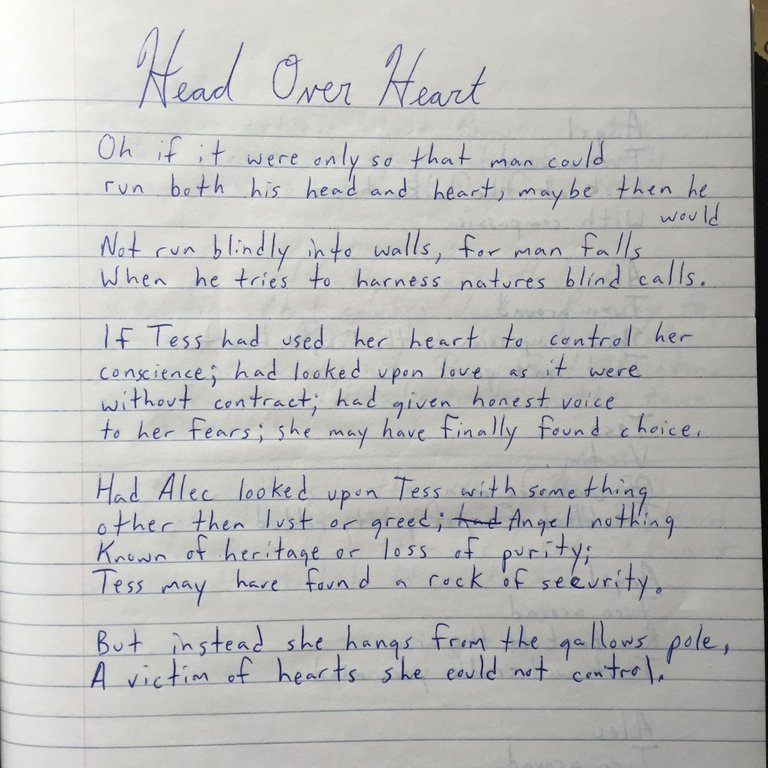 Head Over Heart
Oh if it were only so that man could
run both his head and heart, maybe then he
would
Not run blindly into walls, for man falls
When he tries to harness natures blind calls.
If Tess had used her heart to control her
conscience; had looked upon love as it were
without contract; had given honest voice
to her fears; she may have finally found choice.
Had Alec looked upon Tess with something
other then lust or greed; had Angel nothing
Known of heritage or loss of purity;
Tess may have found a rock of security.
But instead she hangs from the gallows pole,
A victim of hearts she could not control.